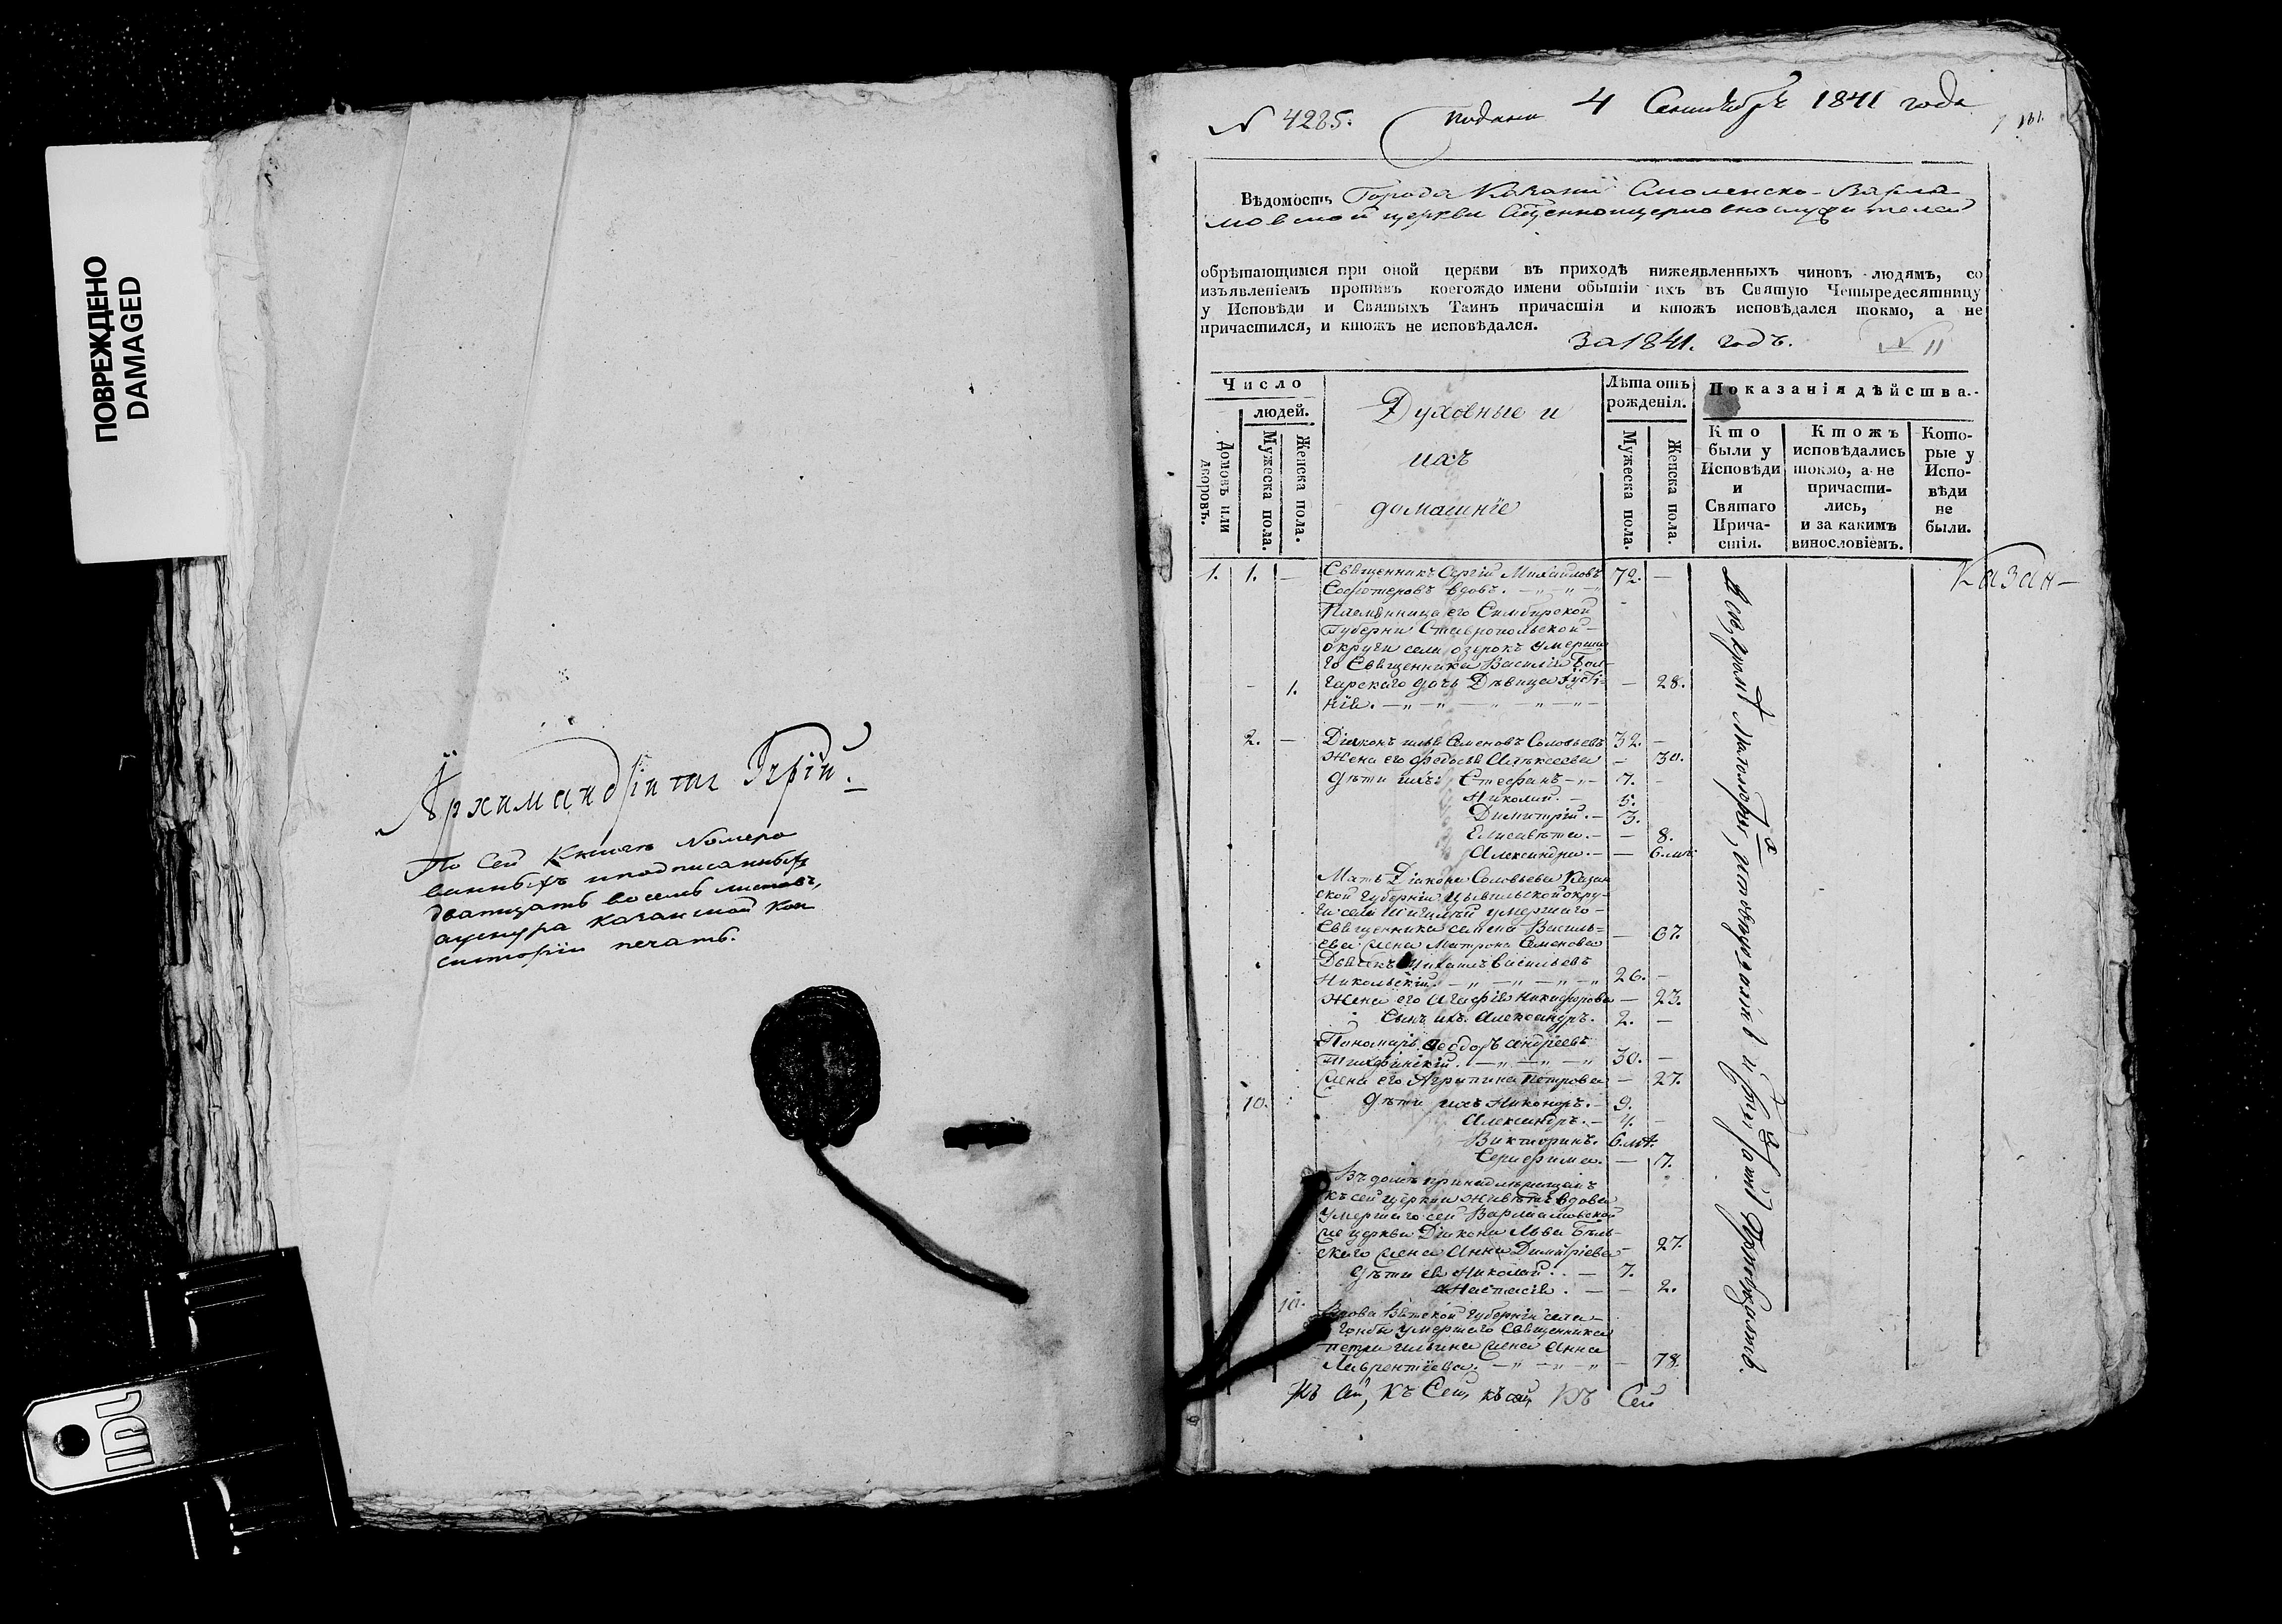 ПОВРЕЖДЕНО
DAMAGED
Архимандритъ Гурій.
По сей Книгѣ Номеро
ванныхъ и подписанныхъ
дватцать восемь листовъ,
Казанской Кон
систоріи печать.
N 4285. Подана 4 Сентября 1841 года
Вѣдомость Города Казани Смоленско-Варла
мовской церкви Священноцерковнослужителей
обрѣтающимся при оной церкви въ приходѣ нижеявленныхъ чиновъ людямъ, со
изъявленіемъ противъ коегождо имени обытіи ихъ въ Святую Четыредесятницу
у Исповѣди и Святыхъ Таинъ причастія и ктожъ исповѣдался токмо, а не
причастился, и ктожъ не исповѣдался.
за 1841. годъ. N 11
Число
людей.
Домовъ или дворовъ.
Мужеска пола.
Женска пола.
Духовные и
ихъ
домашніе
Лѣта отъ
рожденія.
Мужеска пола.
Женска пола.
Показанія дѣйства.
Кто
были у
Исповѣди
и
Святаго
Прича-
стія.
Ктожъ
исповѣдались
токмо, а не
причасти-
лись,
и за какимъ
винословіемъ.
Кото-
рые у
Испо-
вѣди
не
были.
1. 1. — Священникъ Сергій Михайловъ 72. —
вдовъ.
Племянница его Симбирской
Губерни Ставропольской
округи села озерокъ умерша
го Священника Василія Бол-
гарскаго дочь Дѣвица Іусти- 1. — 28.
нія.
2. — Діаконъ Илья Семеновъ Соловьевъ 32. —
Жена его Федосья Алексеева — 30.
дѣти ихъ: Стефанъ 7. —
Николай. 5.
Димитрій. 3.
Елисавета. — 8.
Александра. — 6. мѣ.
Мать Діакона Соловьева Казан
ской Губерніи Цывильской окру-
ги села умершаго
Священника Семена Василь-
ева жена Матрона Семенова — 67.
Дьячекъ Михаилъ Васильевъ
Никольскій. 26. —
Жена его Никифорова — 23.
Сынъ ихъ Александръ. 2. —
Пономарь Феодоръ Андреевъ
Тихвинскій. 30. —
жена его Агрипина Петрова — 27.
10. Дѣти ихъ Никоноръ. 9.
Александръ. 4. —
Викторинъ. 6. мѣ.
Серафима. — 7.
Въ домѣ принадлежащемъ
къ сей церкви живетъ вдова
умершаго сей Варлаамовской
же церкви Діакона Льва Бѣль-
скаго жена Анна Димитріева 27.
дѣти ея Николай. 7.
Анастасія. — 2.
10. Вдова Вятской Губерніи села
умершаго Священника
Петра Ильина жена Анна
Лаврентіева. — 78.
Казан—
Къ сей, къ Сей, къ сей, Къ Сей